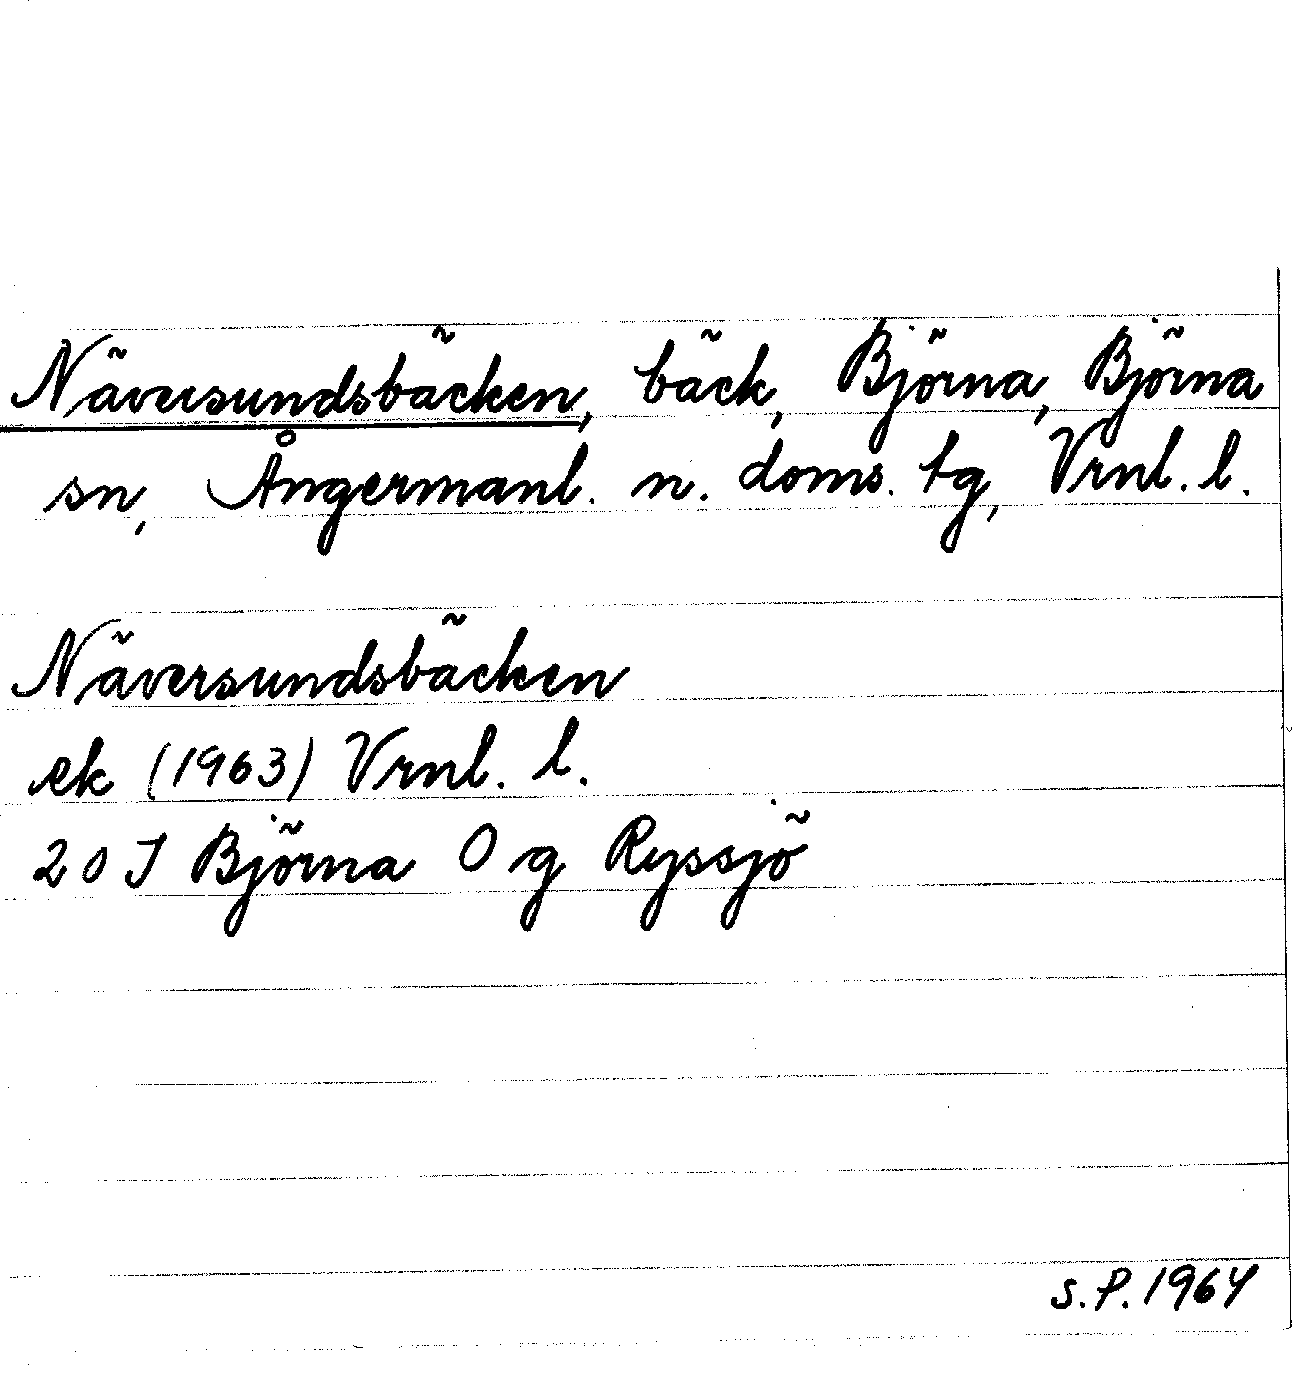 Näversundsbäcken, bäck, Björna, Björna
sn, Ångermanl. n. doms. tg, Vrnl. l.
Näversundsbäcken
ek (1963) Vrnl. l.
20 J Björna 0 g Ryssjö
S.P. 1964